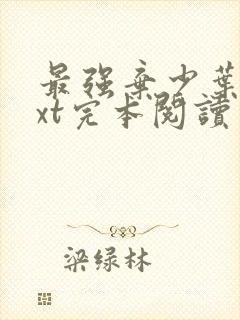 最强棄少葉
xt完本閱讀
梁绿林